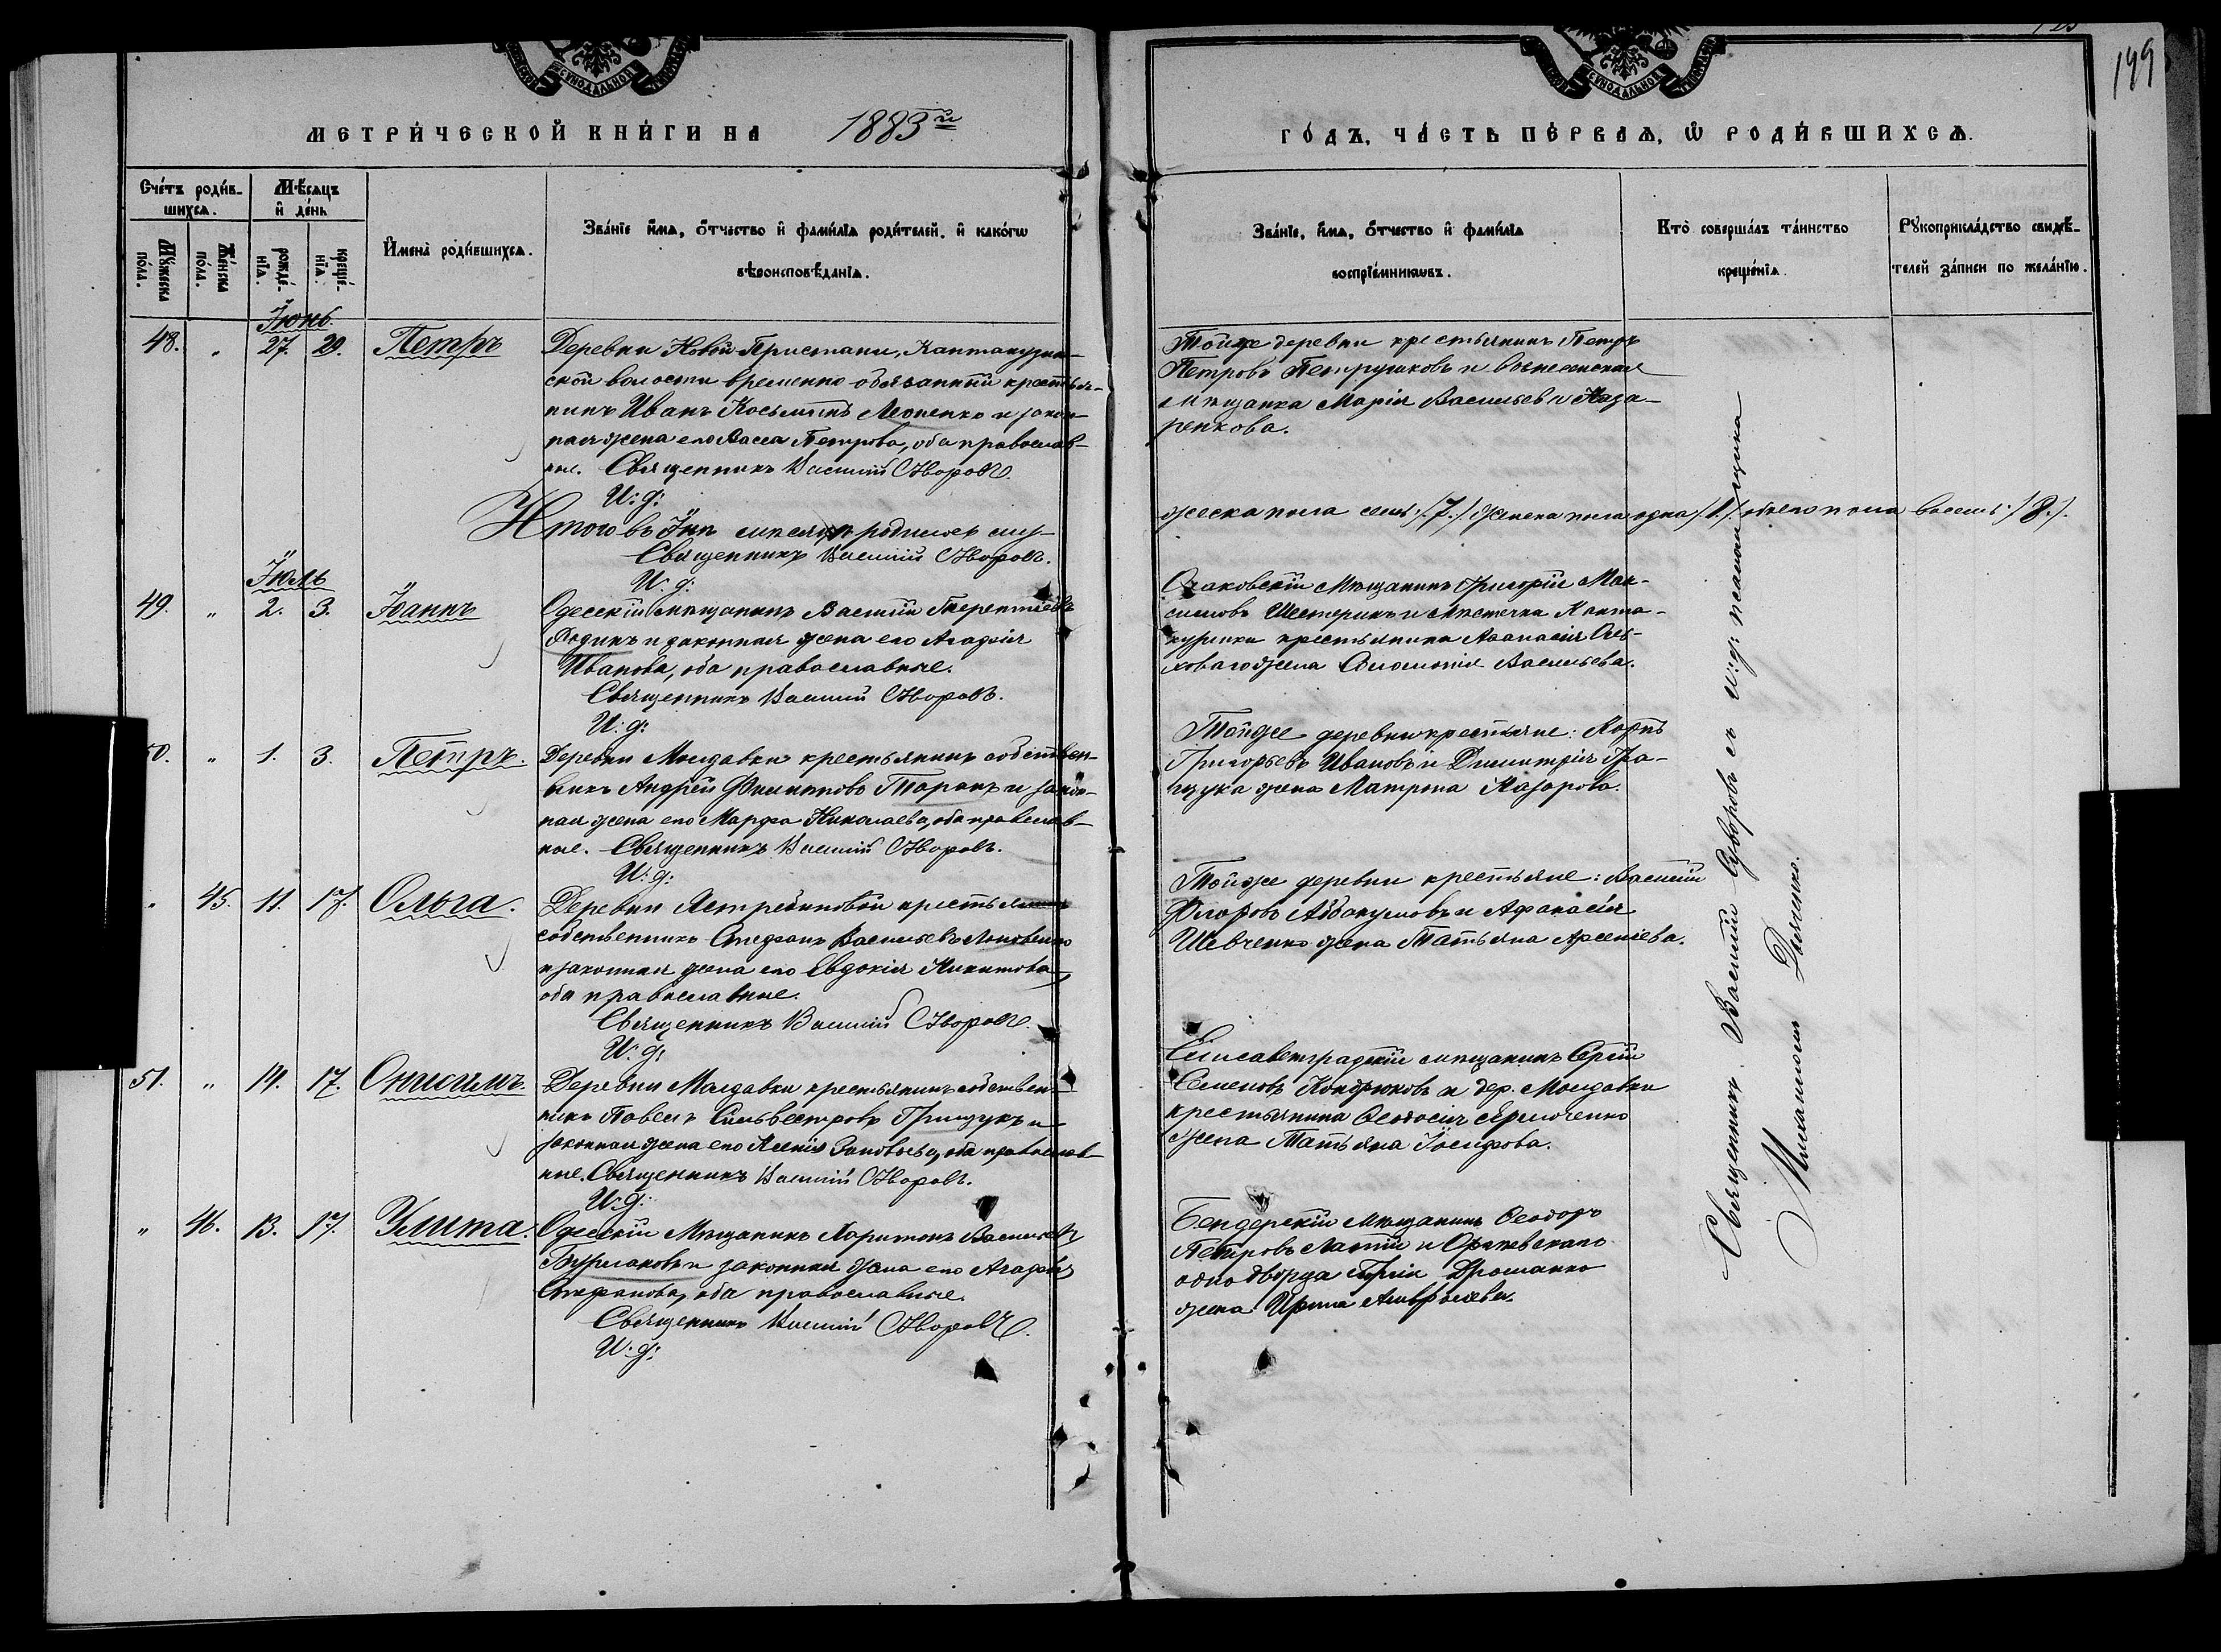 199
МЕТРИ́ЧЕСКОЙ КНИ́ГИ НА 1883й
ГО́ДЪ, ЧА́СТЬ ПЕ́РВАѦ, Ѡ РОДИ́ВШИХСѦ.
Сче́тъ роди́в-
шихсѧ.
Мꙋ́жеска по́ла.
Же́нска по́ла.
Мѣ́сѧцъ
и де́нь
рожде́-нїѧ.
креще́-нїѧ.
И҆мена̀ роди́вшихсѧ.
Зва́нїе и҆́мѧ, ѻ҆́тчество и҆ фами́лїѧ роди́телей, и҆ како́гѡ
вѣроисповѣ́данїѧ.
Зва́нїе, и҆́мѧ, ѻ҆́тчество и҆ фами́лїѧ
воспрїе́мникѡвъ.
Кто̀ соверша́лъ та́инство
креще́нїѧ.
Рꙋкоприкла́дство свидѣ́-
телей за́писи по жела́нїю.
Іюнь
48. „ 27. 29. Петръ
Деревни Новой-Пристани, Кантакузин-
ской волости временно-обязанный крестья-
нинъ Иванъ Косьминъ Леоненко и закон-
ная жена его Васса Петрова, оба православ-
ные. Священникъ Василій Суворовъ.
И. д.
Тойже деревни крестьянинъ Петръ
Петровъ Петрушковъ и вознесенская
мѣщанка Марія Васильева Наза-
ренкова.
Итого въ Іюнѣ мѣсяцѣ родилось му-
жеска пола семь /7./ женска пола одна /1./ обоего пола восемь /8./.
Священникъ Василій Суворовъ.
И. д.
Іюль
49. „ 2. 3. Іоаннъ
Одесскій мѣщанинъ Василій Терентіевъ
и законная жена его Агафія
Иванова, оба православные.
Священникъ Василий Суворовъ.
И. д.
Очаковскій мѣщанинъ Григорій Мак-
симовъ Шестерикъ и мѣстечка Канта-
кузинки крестьянина Аѳанасія Оль-
ховаго жена Соломонія Васильева.
50. „ 1. 3. Петръ.
Деревни Молдавки крестьянинъ собствен-
никъ Андрей Филиповъ Таранъ и закон-
ная жена его Марфа Николаева, оба православ-
ные. Священникъ Василій Суворовъ.
И. д.
Тойже деревни крестьяне: Карпъ
Григорьевъ Ивановъ и Димитрія Гра-
щука жена Матрона Назарова.
„ 45. 11. 17. Ольга.
Деревни Ястребиновой крестьянинъ
собственникъ Стефанъ Васильевъ
и законная жена его Евдокія Никитова,
оба православные.
Священникъ Василій Суворовъ.
И. д.
Тойже деревни крестьяне: Василій
Флоровъ Аввакумовъ и Афанасія
Шевченко жена Татьяна Арсеніева.
51. „ 14. 17. Онисимъ.
Деревни Молдавки крестьянинъ собствен-
никъ Павелъ Сильвестровъ Грищукъ и
законная жена его Ксенія Зиновьева, оба православ-
ные. Священникъ Василій Суворовъ.
И. д.
Елисаветградскій мѣщанинъ Сергій
Семеновъ Кондрюковъ и дер. Молдавки
крестьянина Ѳеодосія Ермоченко
жена Татьяна Іосифова.
„ 46. 13. 17. Улита.
Одесскій Мѣщанинъ Харитонъ Васильевъ
Бурлаковъ и законная жена его Агафія
Стефанова, оба православные.
Священникъ Василій Суворовъ.
И. д.
Бендерскій Мѣщанинъ Ѳеодоръ
Петровъ и
однодворца Дромашко
жена Ирина Амвросіева.
Священникъ Василій Суворовъ съ и. д. псаломщика
Михаиломъ Дьяченко.